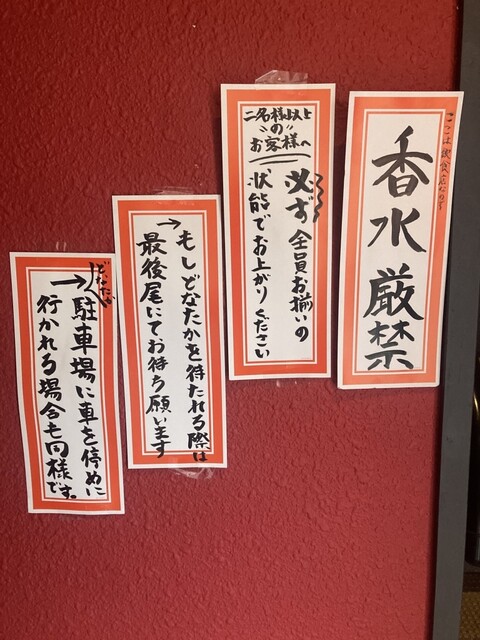 ここは飲食店なので
香水厳禁
二名様以上
の
お客様へ
必ず全員お揃いの
状態でお上がりください
→もしどなたかを待たれる際は
最後尾にてお待ち願います
どなたかが
→駐車場に車を停めに
行かれる場合も同様です。